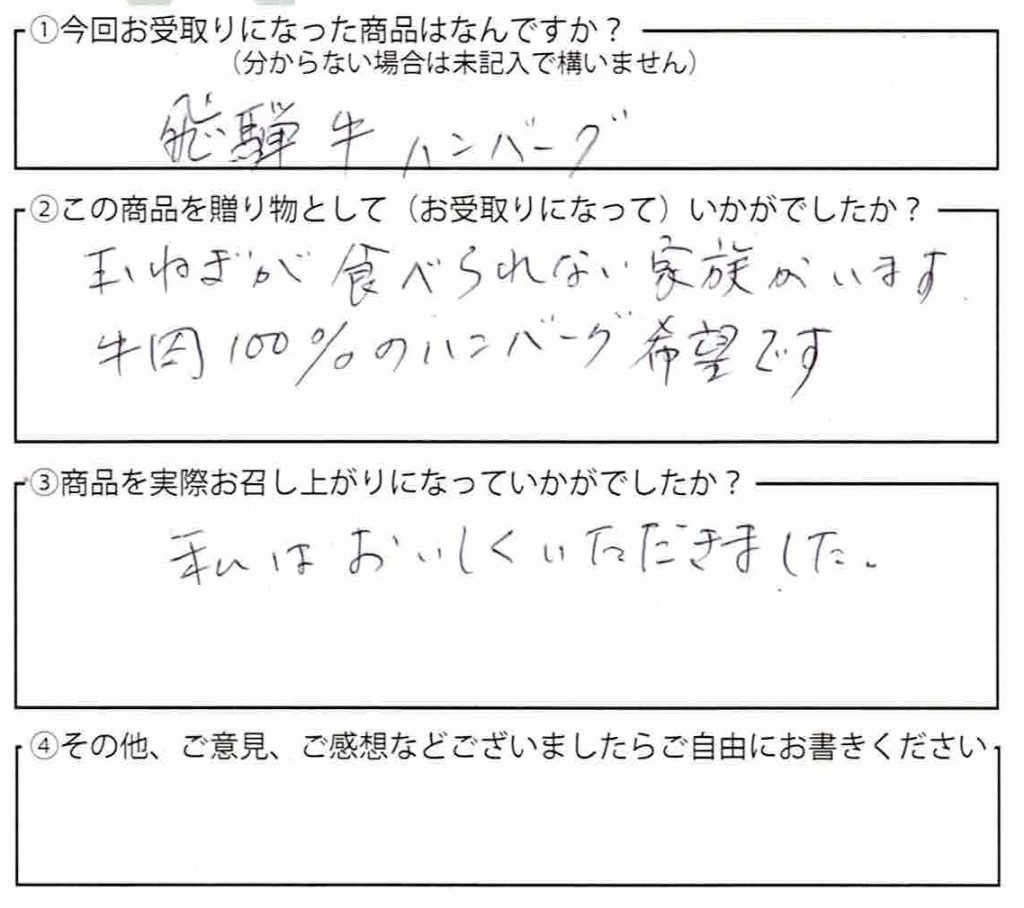 ①今回お受取りになった商品はなんですか？
（分からない場合は未記入で構いません）
飛騨牛ハンバーグ
②この商品を贈り物として（お受取りになって）いかがでしたか？
玉ねぎが食べられない家族がいます
牛肉100%のハンバーグ希望です
③商品を実際お召し上がりになっていかがでしたか？
私はおいしくいただきました。
④その他、ご意見、ご感想などございましたらご自由にお書きください